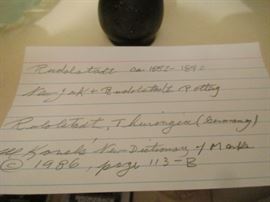 Rudolstadt ca. 1882-1892
New York & Rudolstadt Pottery
Rudolstadt, Thuringia (Germany)
Kovels' New Dictionary of Marks
© 1986, page 113-B